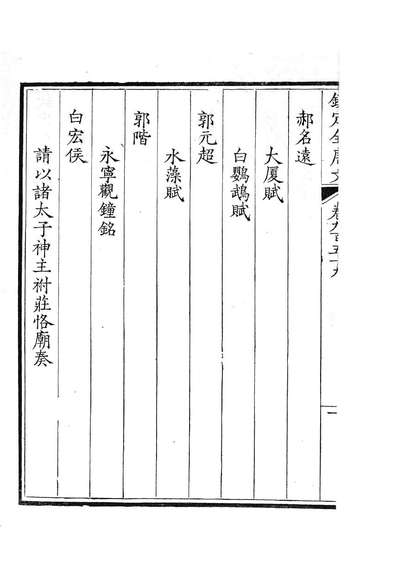 欽定全唐文
卷九百五十九
一
郝名遠
大厦賦
白鸚鵡賦
郭元超
水藻賦
郭階
永寧觀鐘銘
白宏儀
請以諸太子神主祔莊恪廟奏